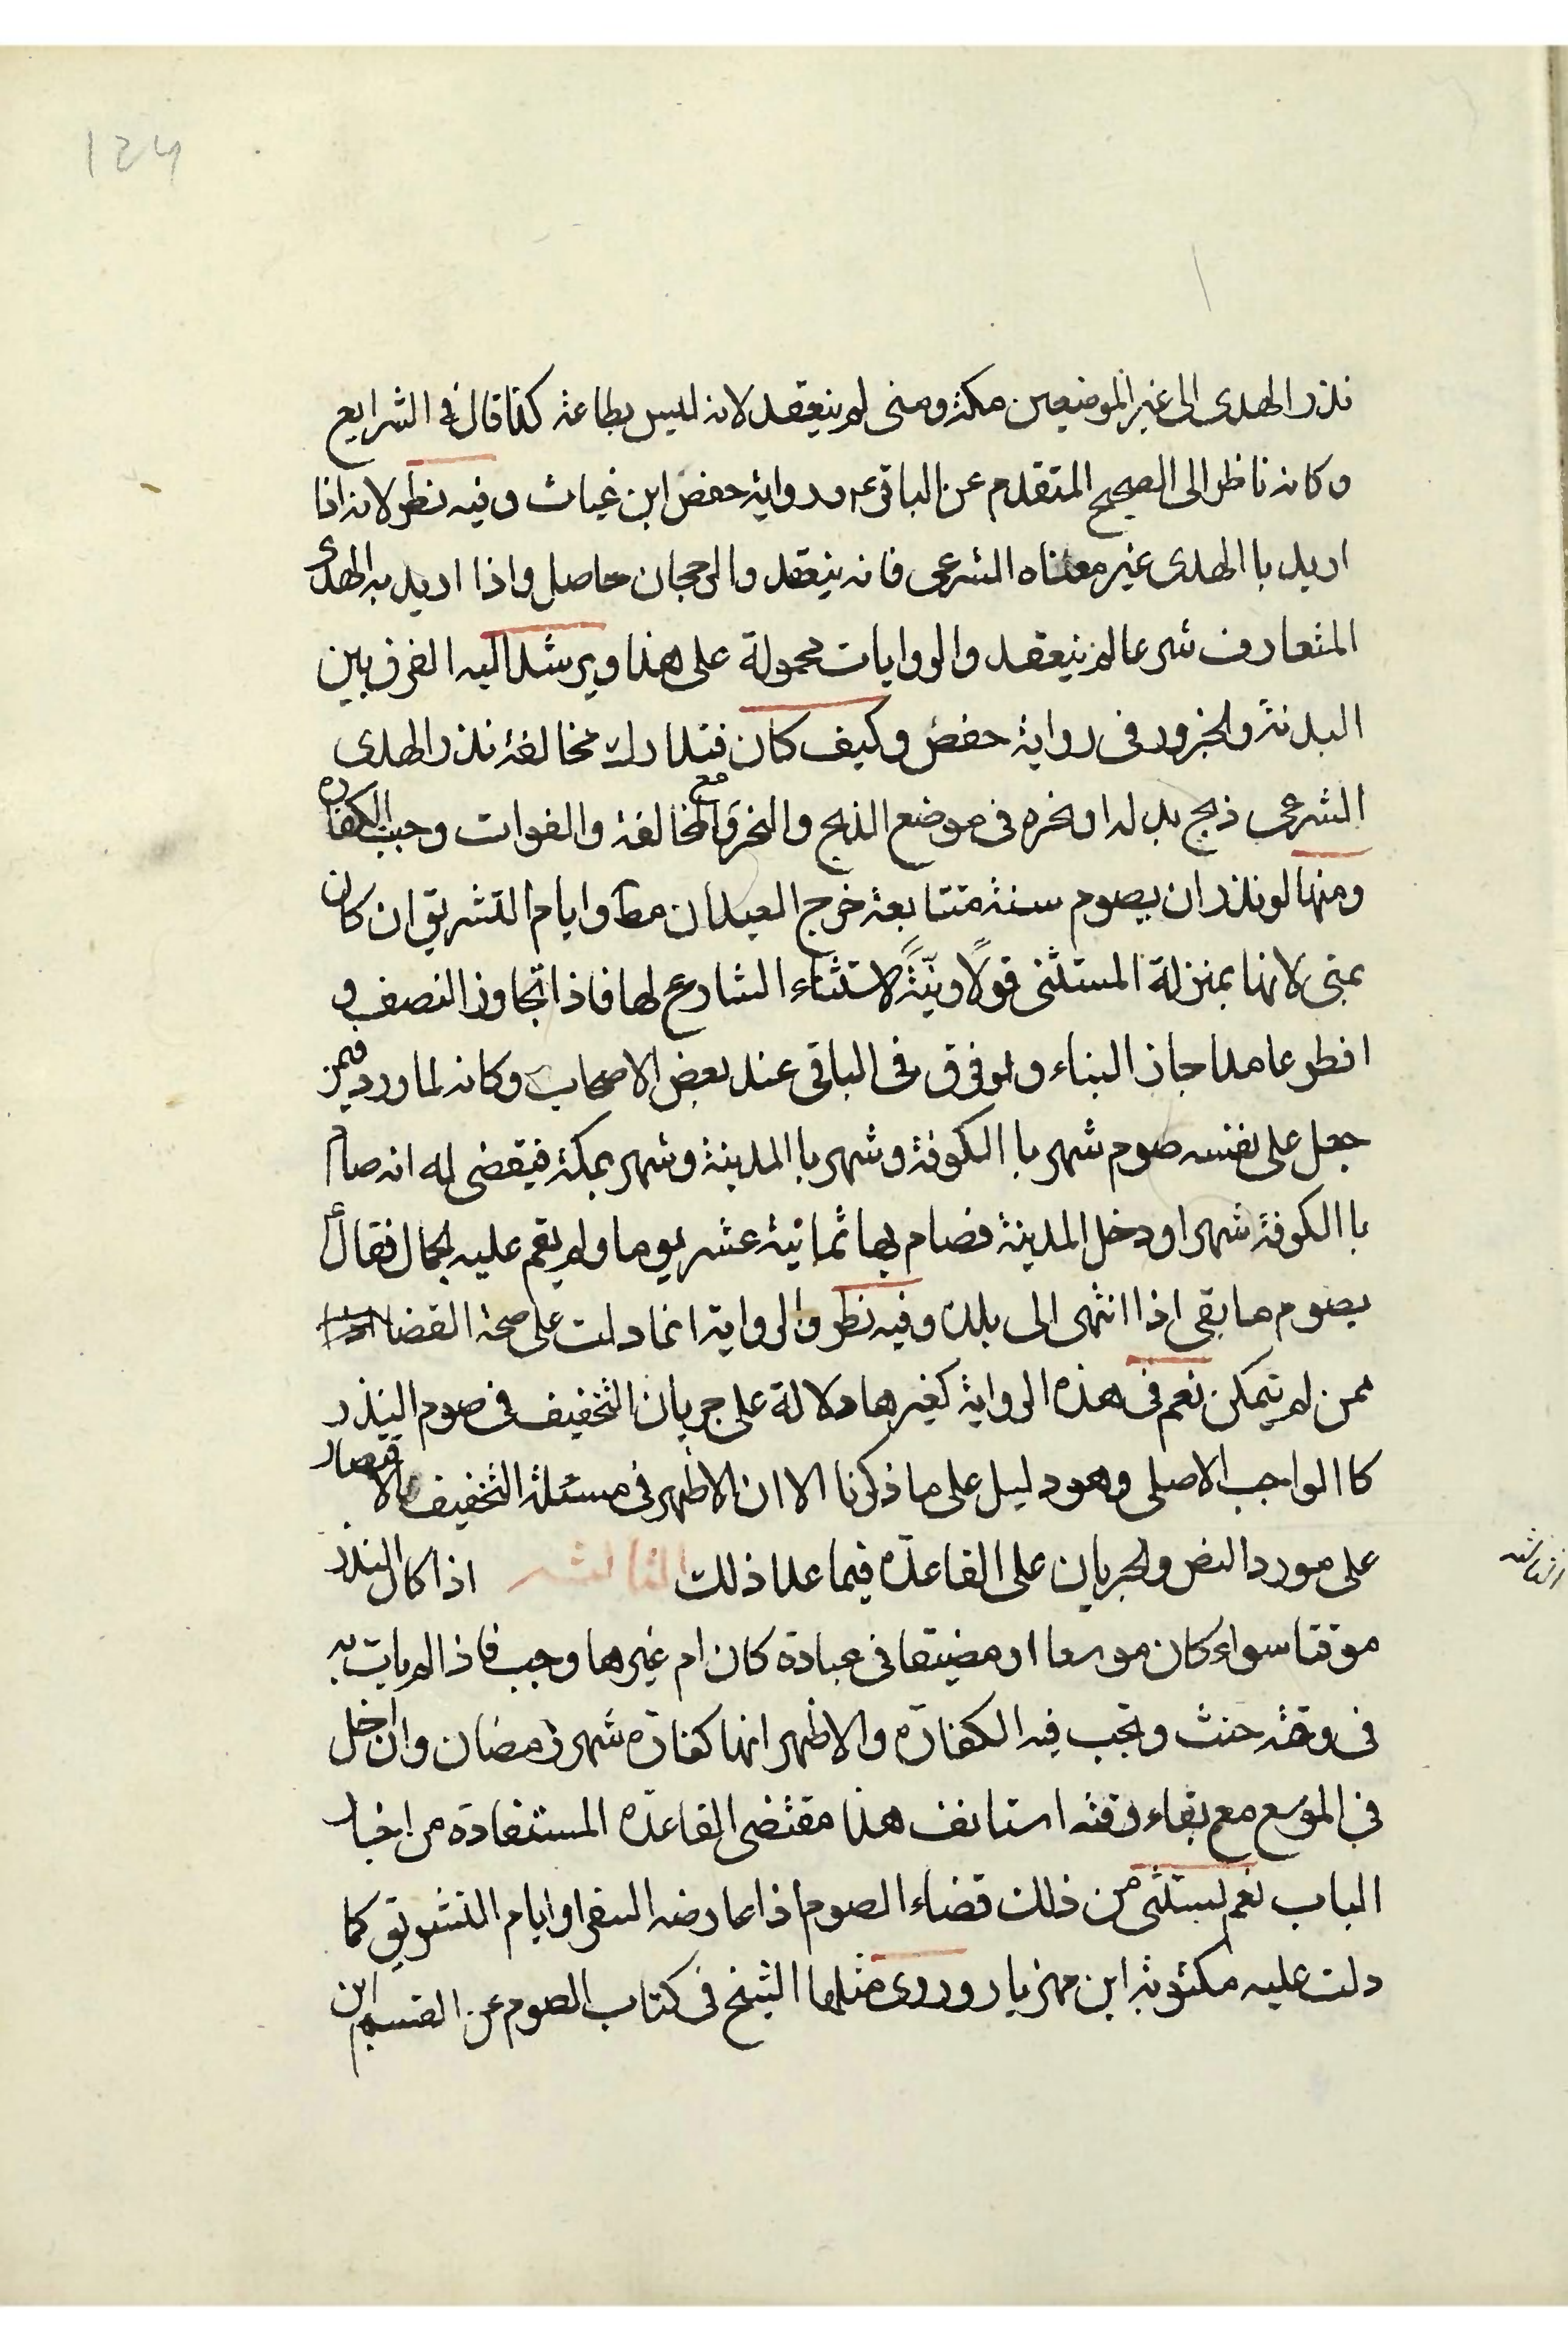 124
نذر الهدى الى غير الموضعين مكة ومنى لم ينعقد لانه ليس بطاعة كذا قال في الشرايع
وكانه ناظر الى الصحيح المتقدم عن الباقر ع ورواية حفص ابن غياث وفيه نظر لانه اذا
اريد با الهدى غير معناه الشرعى فانه ينعقد والرجحان حاصل واذا اريد به الهدى
المتعارف شرعا لم ينعقد والروايات محمولة على هذا ويرشد اليه الفرق بين
البدنة والجزور فى رواية حفص وكيف كان فتدارك مخالفة نذر الهدى
الشرعى ذبح بدله او نحره فى موضع الذبح والنحر ومع المخالفة والفوات وجبت الكفارة
ومنها لو نذر ان يصوم سنة متتابعة خرج العيدان مط وايام التشريق ان كان
بمنى لانها بمنزلة المستثنى قولًا ونيّةً لاستثناء الشارع لها فاذا تجاوز النصف و
افطر عامدا جاز البناء ولو فرق فى الباقى عند بعض الاصحاب وكانه لما ورد فيمن
جعل على نفسه صوم شهر با الكوفة وشهر با المدينة وشهر بمكة فيقضى له انه صام
با الكوفة شهرا ودخل المدينة فصام بها ثمانية عشر يوما ولم يقم عليه الجمال فقال
يصوم ما بقى اذا انتهى الى بلده وفيه نظر والرواية انما دلت على صحة القضا
ممن لم يتمكن نعم فى هذه الرواية كغيرها دلالة على جريان التخفيف فى صوم النذر
كا الواجب الاصلى وهو دليل على ما ذكرنا الا ان الاظهر فى مسئلة التخفيف الاقتصار
على مورد النص والجريان على القاعدة فيما عدا ذلك الثالثة اذا كان النذر
موقتا سواء كان موسعا او مضيقا فى عبادة كان ام غيرها وجب فاذا لم يات به
فى وقته حنث وتجب فيه الكفارة والاظهر انها كفارة شهر رمضان وان اخل
فى الموسع مع بقاء وقته استانف هذا مقتضى القاعدة المستفادة من اخبار
الباب نعم يستثنى من ذلك قضاء الصوم اذا عارضه السفر او ايام التشريق كما
دلت عليه مكتوبة ابن مهزيار وروى مثلها الشيخ فى كتاب الصوم عن القسم ابن